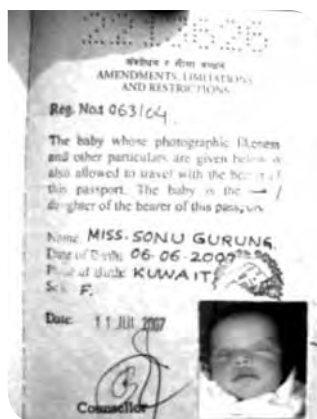 221626
संशोधन र सीमा बन्धन
AMENDMENTS, LIMITATIONS
AND RESTRICTIONS
Reg. No: 063/64
The baby whose photographic likeness
and other particulars are given below is
also allowed to travel with the bearer of
this passport. The baby is the — /
daughter of the bearer of this passport.
Name: MISS. SONU GURUNG.
Date of Birth: 06-06-2007
Place of Birth: KUWAIT
Sex: F.
Date: 11 JUL 2007
Counsellor